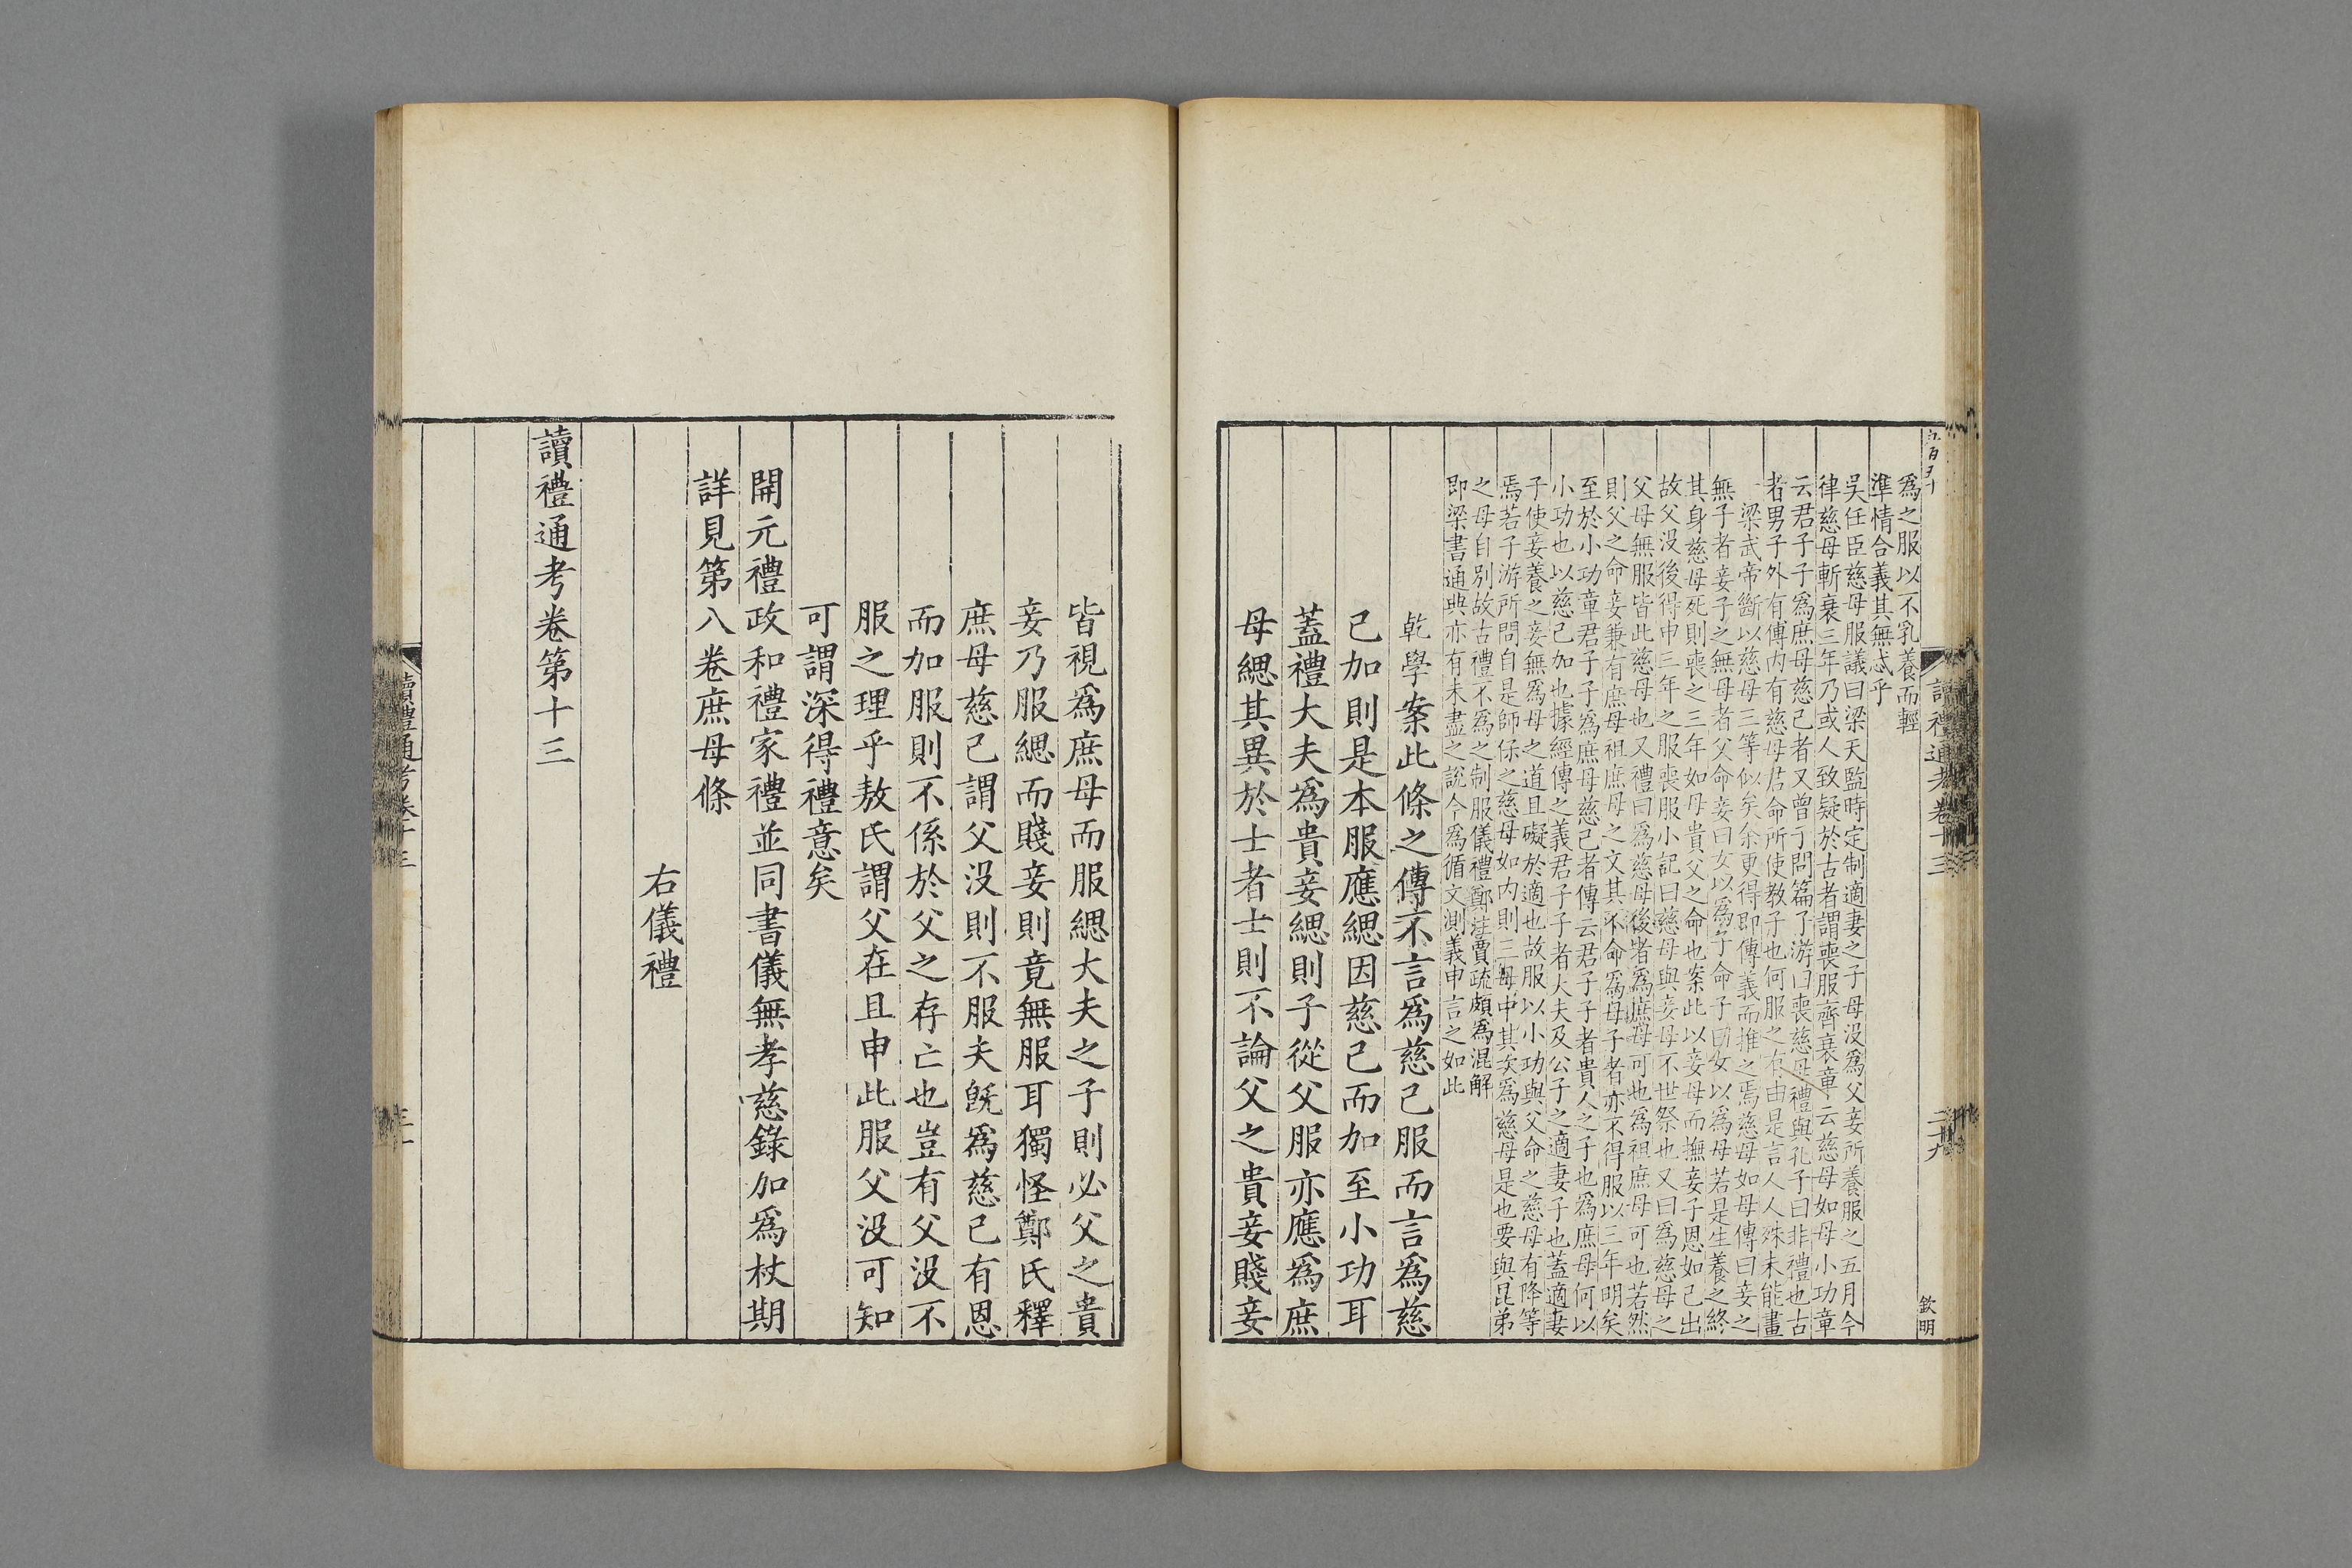 爲之服以不乳養而輕
準情合義其無忒乎
吳任臣慈母服議曰梁天監時定制適妻之子母没爲父妾所養服之五月今
律慈母斬衰三年乃或人致疑於古者謂喪服齊衰章云慈母如母小功章
云君子子爲庶母慈己者又曾子問篇子游曰喪慈母禮與孔子曰非禮也古
者男子外有傅内有慈母君命所使教子也何服之有由是言人人殊未能畫
一梁武帝斷以慈母三等似矣余更得即傳義而推之焉慈母如母傳曰妾之
無子者妾子之無母者父命妾曰女以爲子命子曰女以爲母若是生養之終
其身慈母死則喪之三年如母貴父之命也案此以妾母而撫妾子恩如己出
故父没後得申三年之服喪服小記曰慈母與妾母不世祭也又曰爲慈母之
父母無服皆此慈母也又禮曰爲慈母後者爲庶母可也爲祖庶母可也若然
則父之命妾兼有庶母祖庶母之文其不命爲母子者亦不得服以三年明矣
至於小功章君子子爲庶母慈己者傳云君子子者貴人之子也爲庶母何以
小功也以慈己加也據經傳之義君子子者大夫及公子之適妻子也蓋適妻
子使妾養之妾無爲母之道且礙於適也故服以小功與父命之慈母有降等
焉若子游所問自是師保之慈母如内則三母中其次爲慈母是也要與昆弟
之母自別故古禮不爲之制服儀禮鄭注賈疏頗爲混解
即梁書通典亦有未盡之說今爲循文測義申言之如此
乾學案此條之傳不言爲慈己服而言爲慈
己加則是本服應緦因慈己而加至小功耳
蓋禮大夫爲貴妾緦則子從父服亦應爲庶
母緦其異於士者士則不論父之貴妾賤妾
讀禮通考卷十三
二十九
欽明
皆視爲庶母而服緦大夫之子則必父之貴
妾乃服緦而賤妾則竟無服耳獨怪鄭氏釋
庶母慈己謂父没則不服夫旣爲慈己有恩
而加服則不係於父之存亡也豈有父没不
服之理乎敖氏謂父在且申此服父没可知
可謂深得禮意矣
開元禮政和禮家禮並同書儀無孝慈錄加爲杖期
詳見第八卷庶母條
右儀禮
讀禮通考卷第十三
讀禮通考卷十三